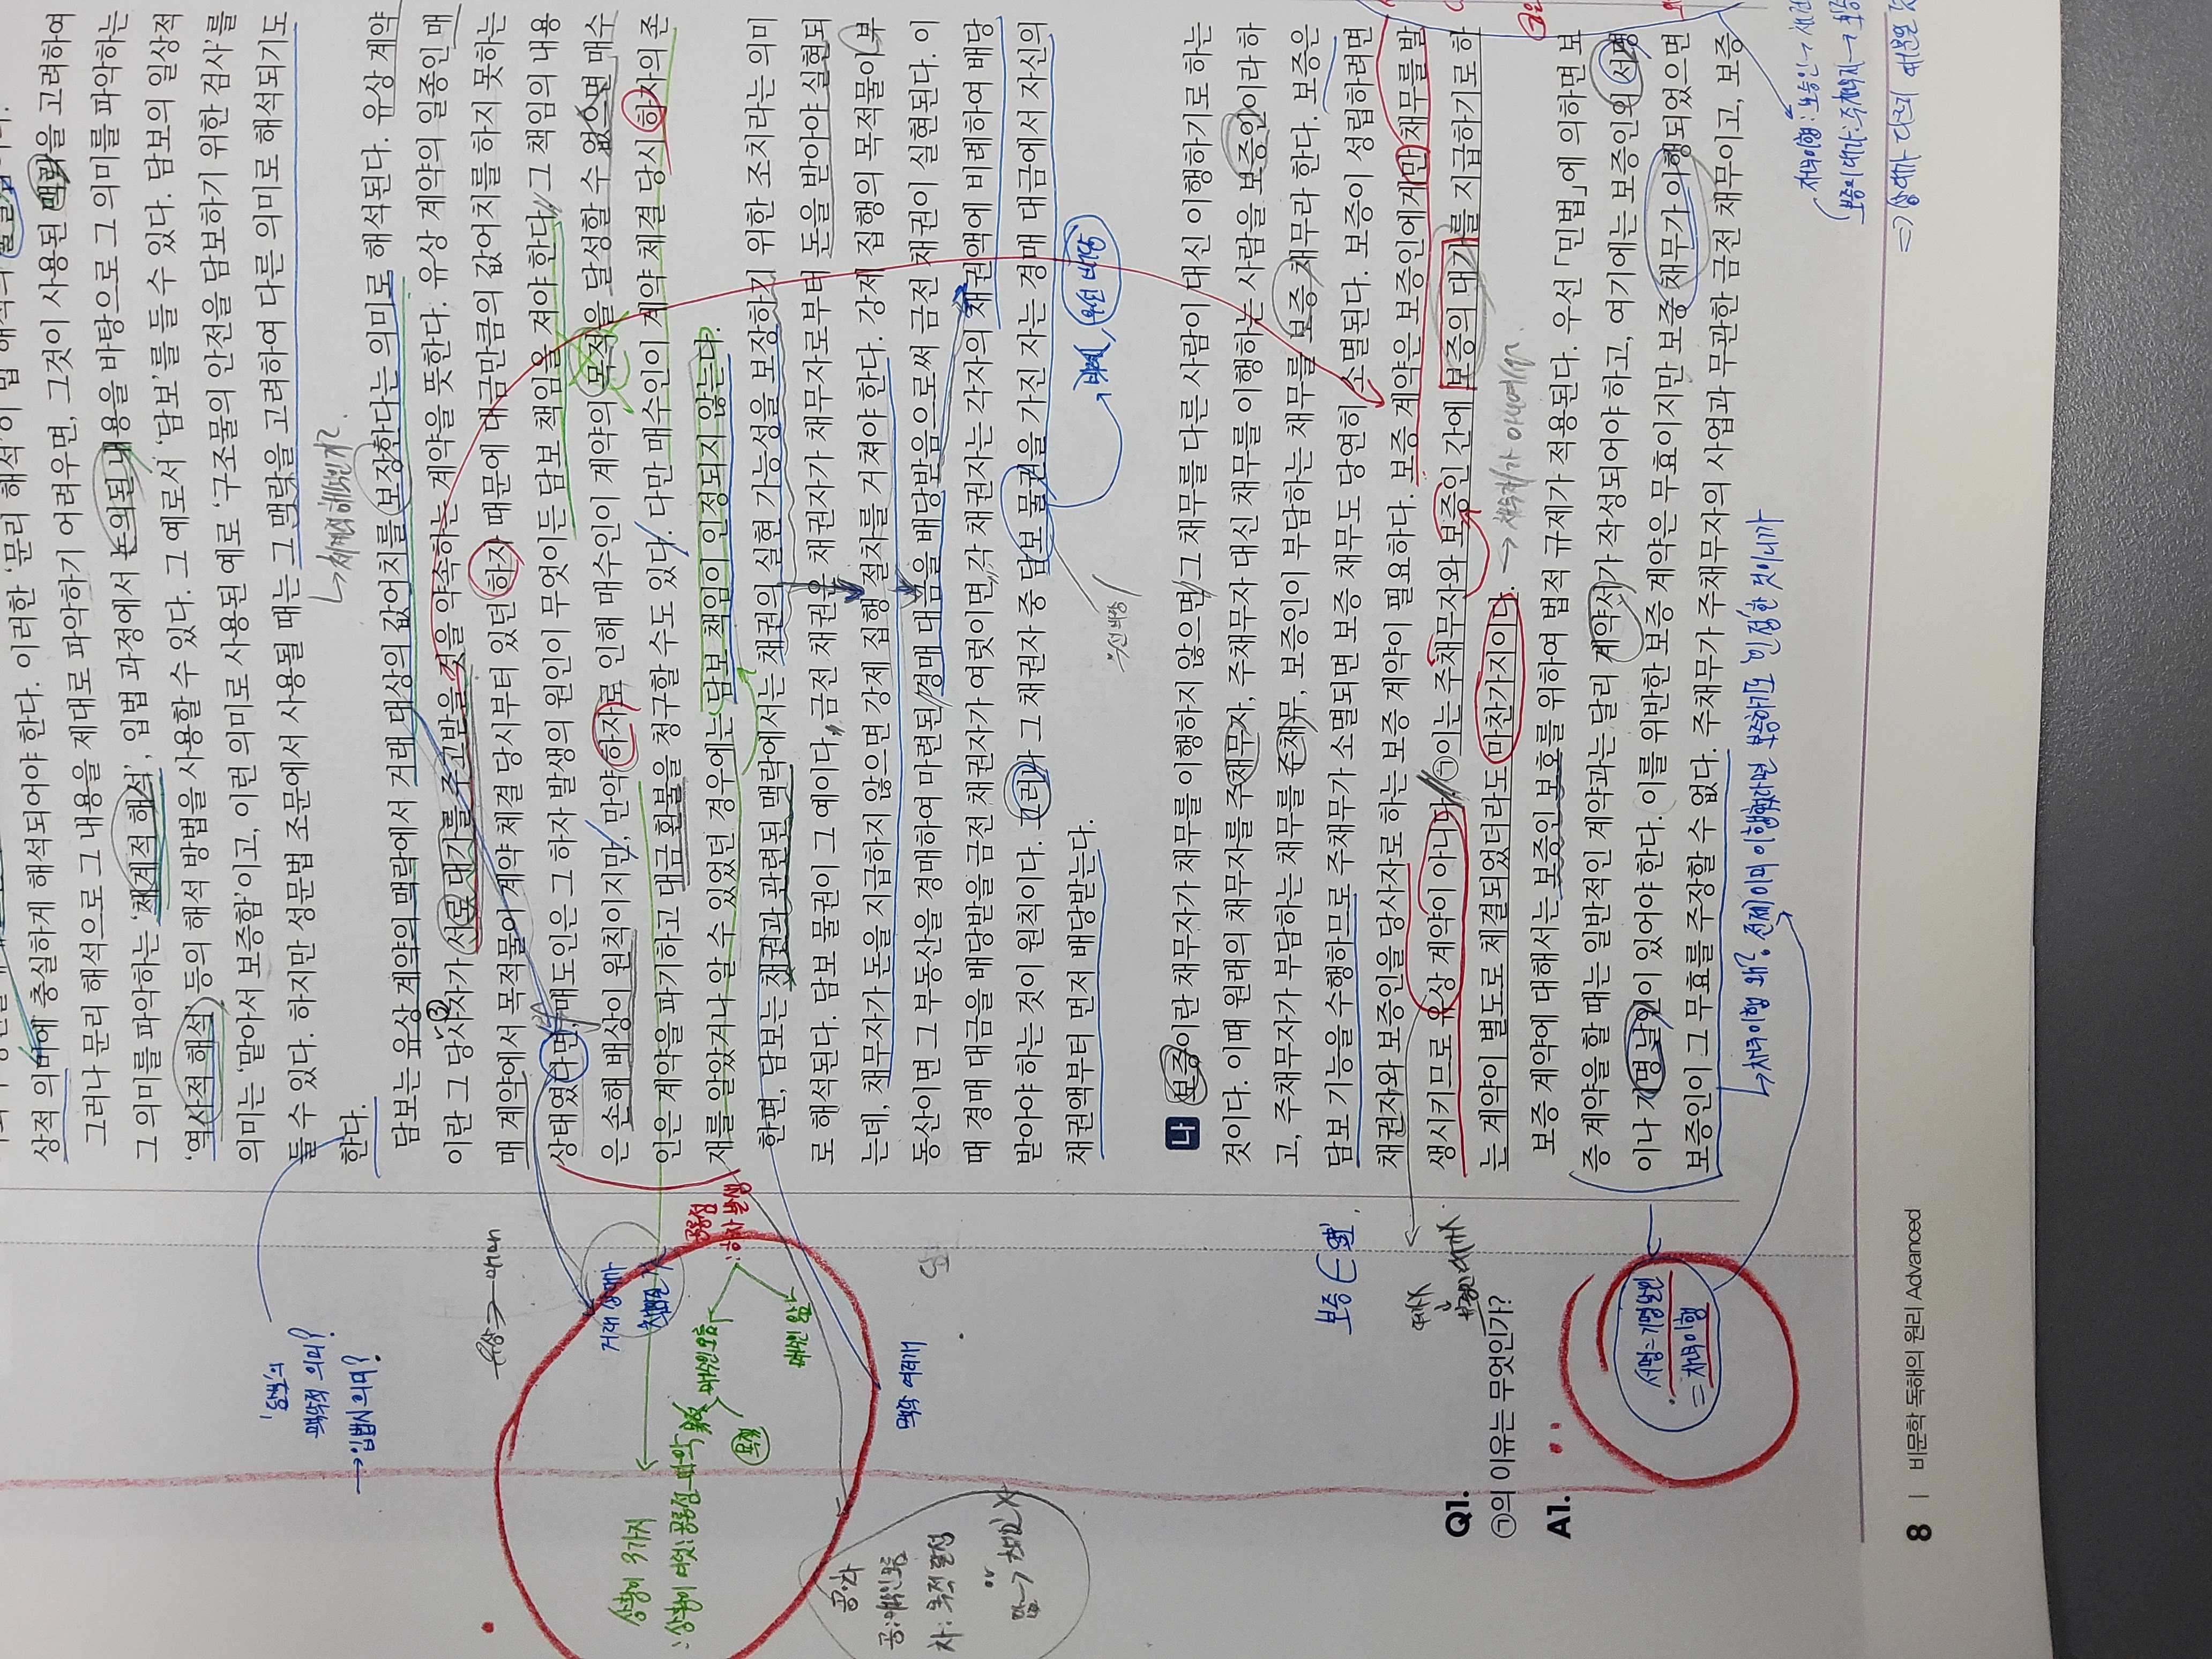 상적 의미에 충실하게 해석되어야 한다. 이러한 '문리 해석'이 법 해석의
그러나 문리 해석으로 그 내용을 제대로 파악하기 어려우면, 그것이 사용된 맥락을 고려하여
그 의미를 파악하는 '체계적 해석', 입법 과정에서 논의된 내용을 바탕으로 그 의미를 파악하는
'역사적 해석' 등의 해석 방법을 사용할 수 있다. 그 예로서 '담보'를 들 수 있다. 담보의 일상적
의미는 '맡아서 보증함'이고, 이런 의미로 사용된 예로 '구조물의 안전을 담보하기 위한 검사'를
들 수 있다. 하지만 성문법 조문에서 사용될 때는 그 맥락을 고려하여 다른 의미로 해석되기도
한다.
담보는 유상 계약의 맥락에서 거래 대상의 값어치를 보장한다는 의미로 해석된다. 유상 계약
이란 그 당사자가 서로 대가를 주고받을 것을 약속하는 계약을 뜻한다. 유상 계약의 일종인 매
매 계약에서 목적물이 계약 체결 당시부터 있던 하자 때문에 대금만큼의 값어치를 하지 못하는
상태였다면, 매도인은 그 하자 발생의 원인이 무엇이든 담보 책임을 져야 한다. 그 책임의 내용
은 손해 배상이 원칙이지만, 만약 하자로 인해 매수인이 계약의 목적을 달성할 수 없으면 매수
인은 계약을 파기하고 대금 환불을 청구할 수도 있다. 다만 매수인이 계약 체결 당시 하자의 존
재를 알았거나 알 수 있었던 경우에는 담보 책임이 인정되지 않는다.
한편, 담보는 채권과 관련된 맥락에서는 채권의 실현 가능성을 보장하기 위한 조치라는 의미
로 해석된다. 담보 물권이 그 예이다. 금전 채권은 채권자가 채무자로부터 돈을 받아야 실현되
는데, 채무자가 돈을 지급하지 않으면 강제 집행 절차를 거쳐야 한다. 강제 집행의 목적물이 부
동산이면 그 부동산을 경매하여 마련된 경매 대금을 배당받음으로써 금전 채권이 실현된다. 이
때 경매 대금을 배당받을 금전 채권자가 여럿이면, 각 채권자는 각자의 채권액에 비례하여 배당
받아야 하는 것이 원칙이다. 그러나 그 채권자 중 담보 물권을 가진 자는 경매 대금에서 자신의
채권액부터 먼저 배당받는다.
나 보증이란 채무자가 채무를 이행하지 않으면 그 채무를 다른 사람이 대신 이행하기로 하는
것이다. 이때 원래의 채무자를 주채무자, 주채무자 대신 채무를 이행하는 사람을 보증인이라 하
고, 주채무자가 부담하는 채무를 주채무, 보증인이 부담하는 채무를 보증 채무라 한다. 보증은
담보 기능을 수행하므로 주채무가 소멸되면 보증 채무도 당연히 소멸된다. 보증이 성립하려면
채권자와 보증인을 당사자로 하는 보증 계약이 필요하다. 보증 계약은 보증인에게만 채무를 발
생시키므로 유상 계약이 아니다. ㉠이는 주채무자와 보증인 간에 보증의 대가를 지급하기로 하
는 계약이 별도로 체결되었더라도 마찬가지이다.
보증 계약에 대해서는 보증인 보호를 위하여 법적 규제가 적용된다. 우선 「민법」에 의하면 보
증 계약을 할 때는 일반적인 계약과는 달리 계약서가 작성되어야 하고, 여기에는 보증인의 서명
이나 기명날인이 있어야 한다. 이를 위반한 보증 계약은 무효이지만 보증 채무가 이행되었으면
보증인이 그 무효를 주장할 수 없다. 주채무가 주채무자의 사업과 무관한 금전 채무이고, 보증
↳체계적 해석인가?
'담보'의
맥락적 의미?
→입법시 의미?
거래 상대가
공통점
: 하자 발생
매수인 모름
매수인 앎
목적
상황이 3가지
맥락 여러개
공:매수인 모름
차:목적 달성
or
우선 배당
비례,
보증 ∈ 담보
Q1.
㉠의 이유는 무엇인가?
A1.
서명=기명날인
=채무이행
↳채무이행 왜? 전제이미 이행했다면 보증하기로 인정한 것이니까
⇒ 상대가 다르기 때문일 것
8 | 비문학 독해의 원리 Advanced